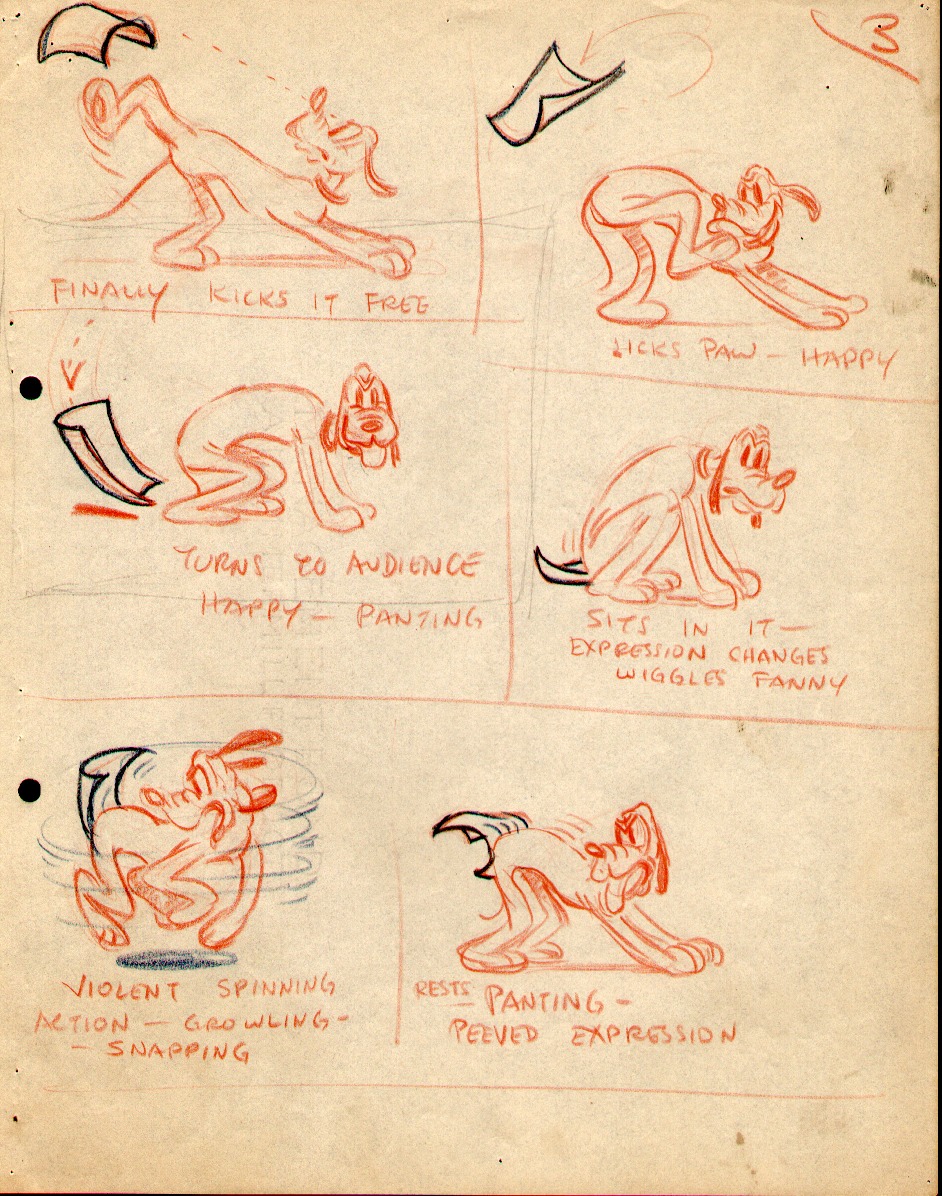 3
FINALLY KICKS IT FREE
LICKS PAW - HAPPY
TURNS TO AUDIENCE
HAPPY - PANTING
SITS IN IT -
EXPRESSION CHANGES
WIGGLES FANNY
VIOLENT SPINNING
ACTION - GROWLING -
- SNAPPING
RESTS PANTING -
PEEVED EXPRESSION